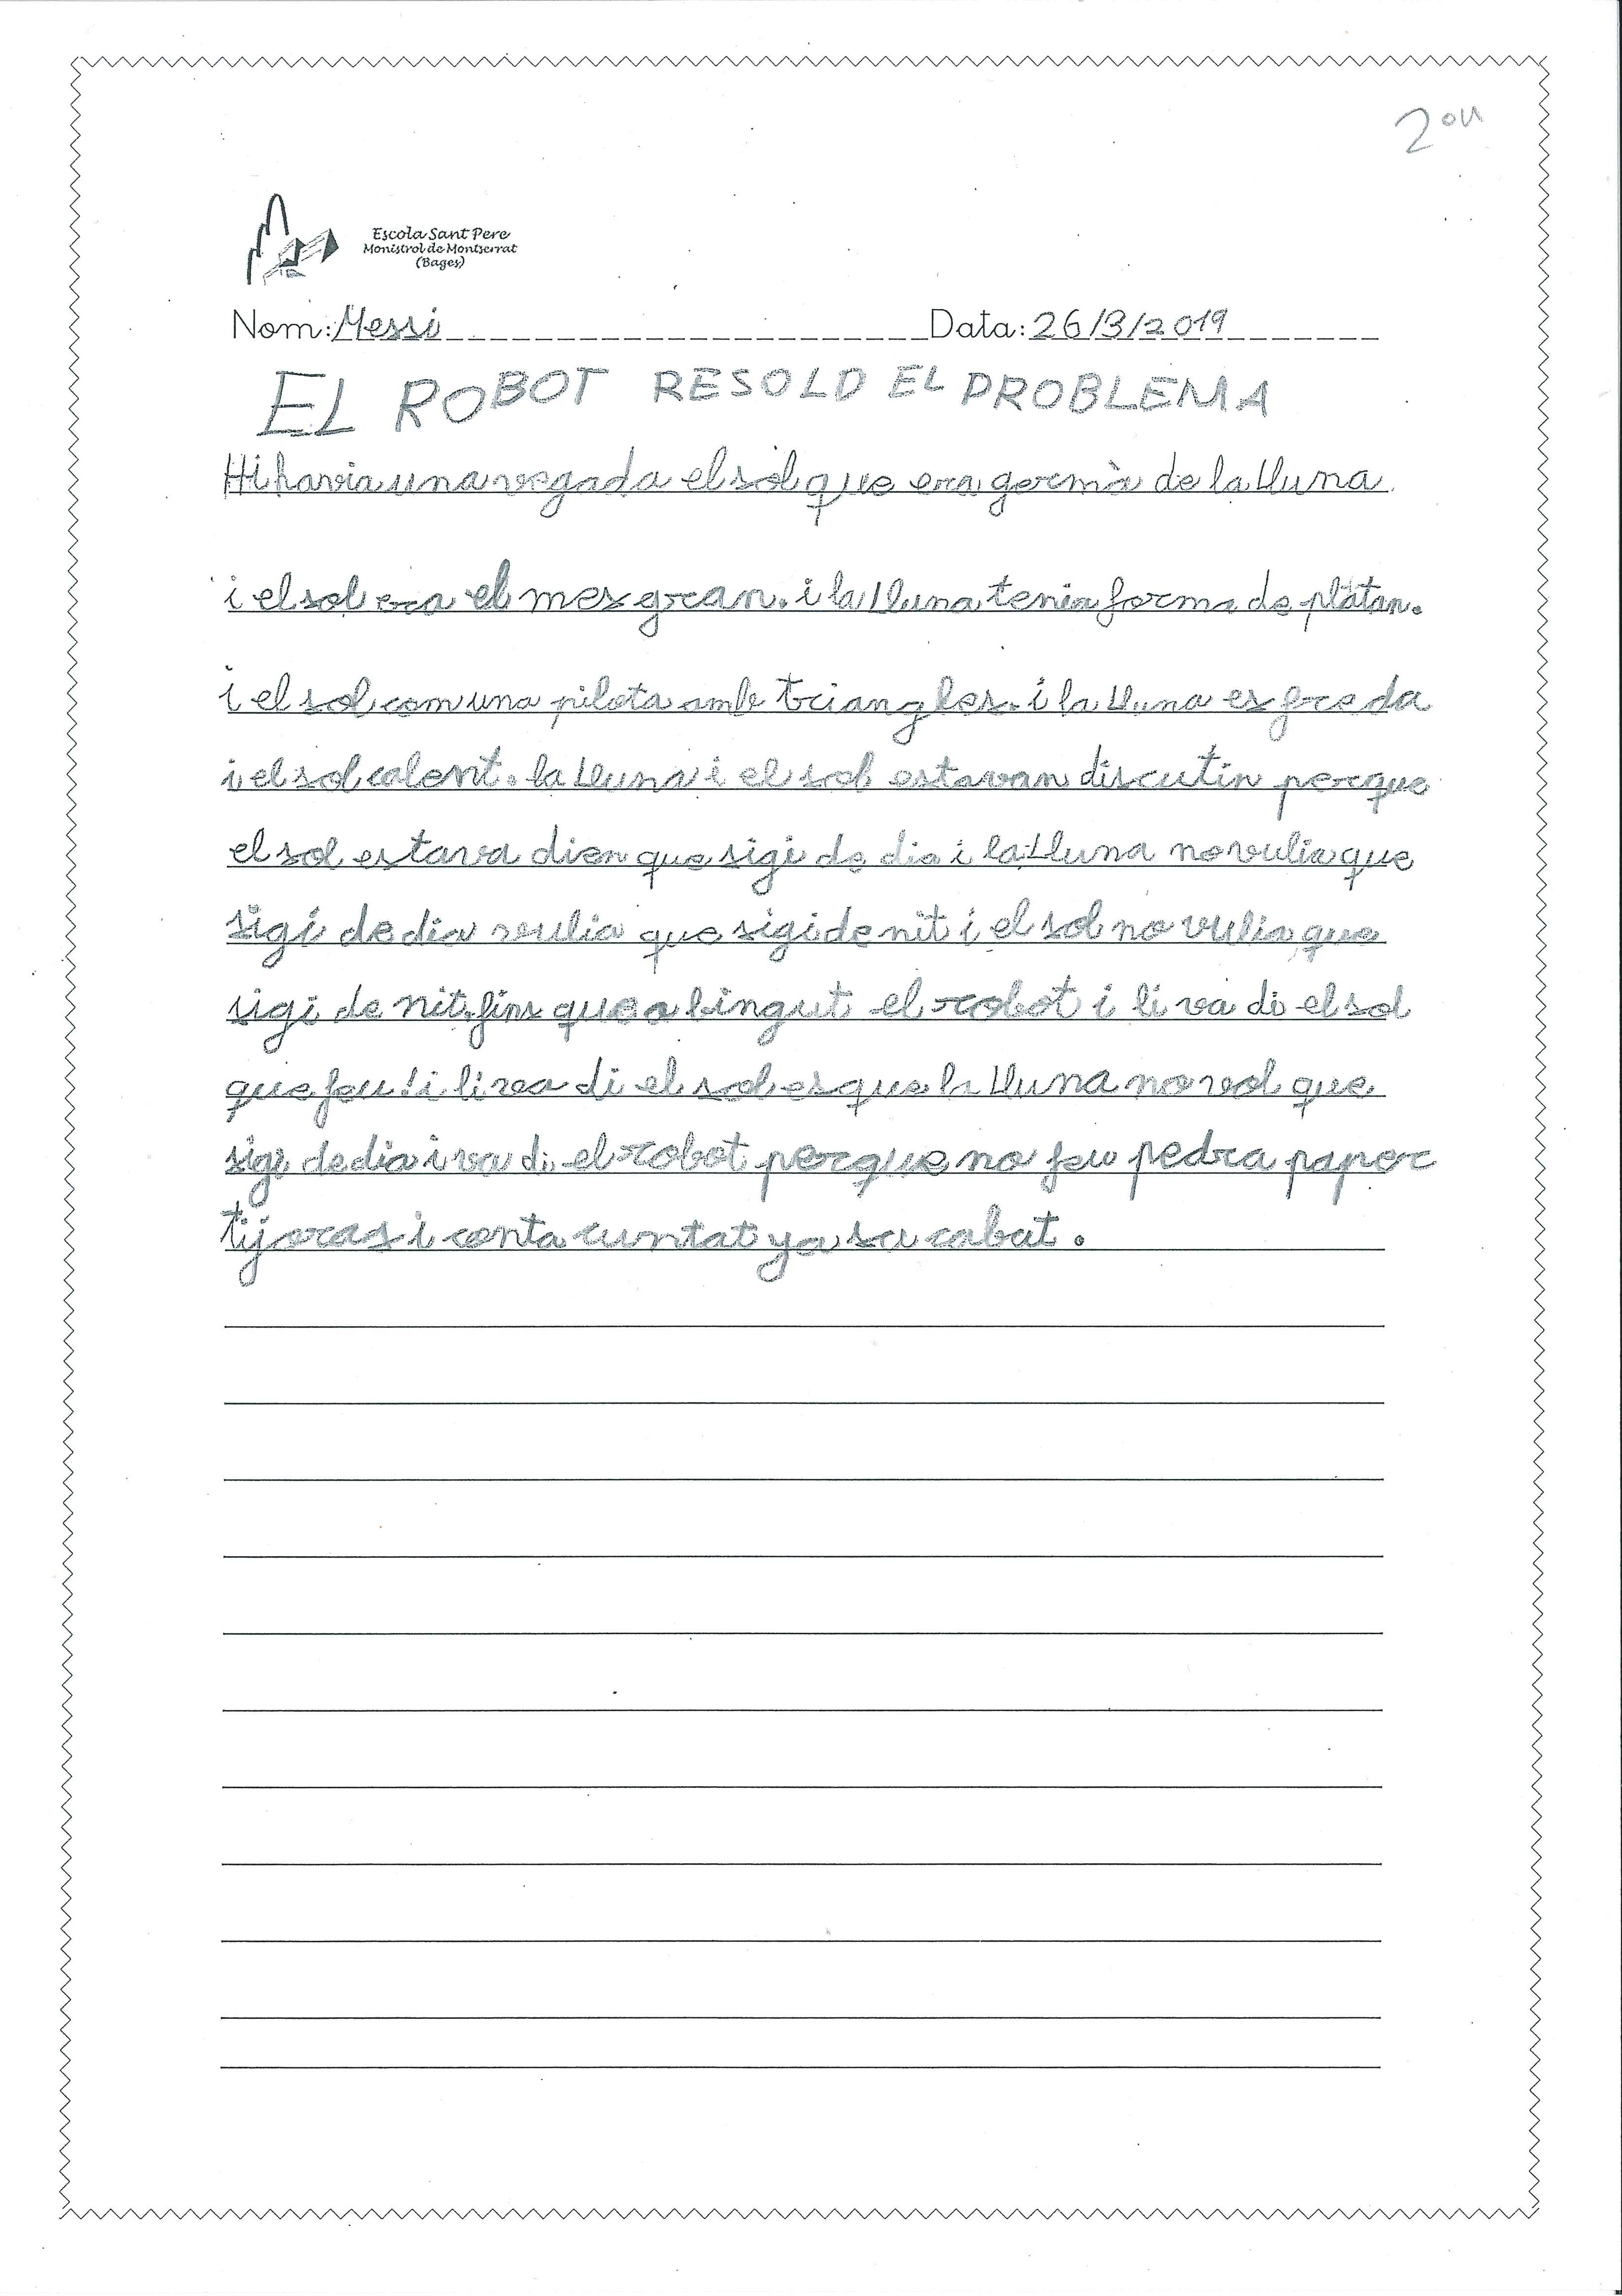 2on
Escola Sant Pere
Monistrol de Montserrat
(Bages)
Nom: Messi Data: 26/3/2019
EL ROBOT RESOLD EL PROBLEMA
Hi havia una vegada el sol que era germà de la lluna
i el sol era el mes gran. i la lluna tenia forma de platan.
i el sol com una pilota amb triangles. i la lluna es freda
i el sol calent. la lluna i el sol estavan discutin perque
el sol estava dien que sigi de dia i la lluna no vulia que
sigi de dia vulia que sigi de nit i el sol no vulia que
sigi de nit. fins que a bingut el robot i li va di el sol
que feu! i li va di el sol es que la lluna no vol que
sigi de dia i va di el robot perque no feu pedra paper
tijeras i conta cuntat ya sa cabat.